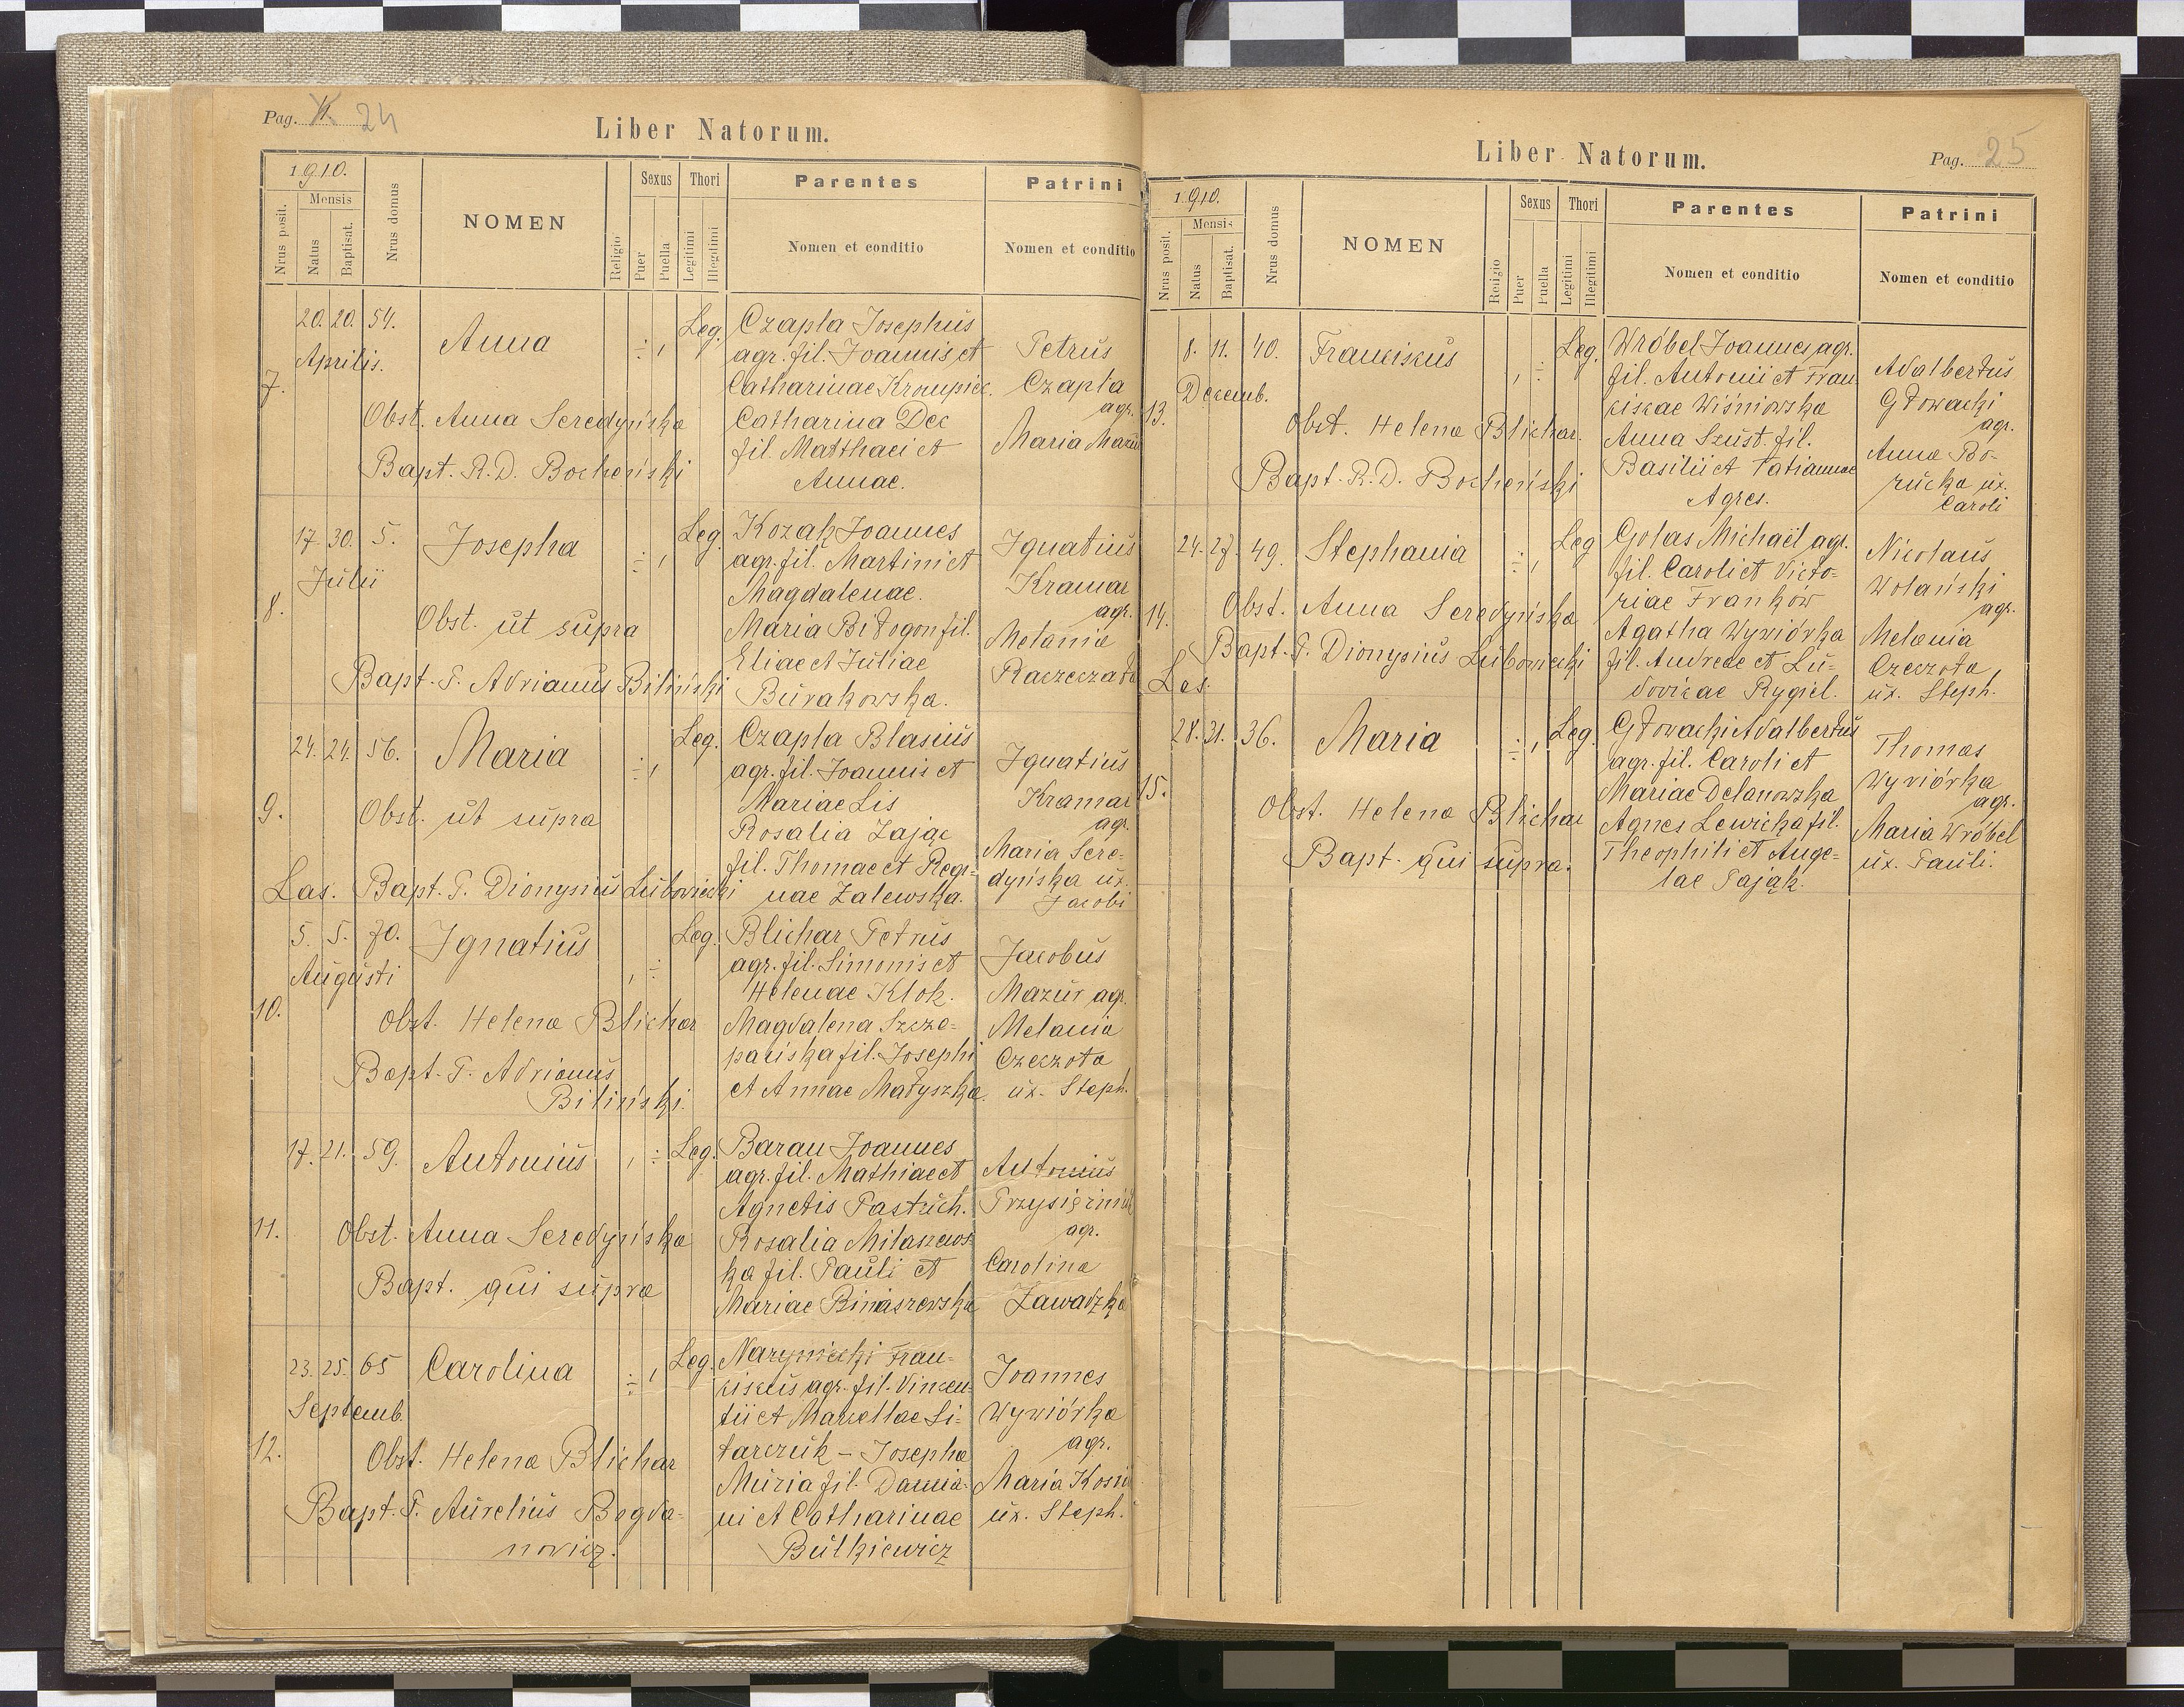 Pag. 24
Liber Natorum.
1910.
Nrus posit.
Mensis
Natus
Baptisat.
Nrus domus
NOMEN
Religio
Sexus
Puer
Puella
Thori
Legitimi
Illegitimi
Parentes
Nomen et conditio
Patrini
Nomen et conditio
7.
20. 20. 54.
Aprilis.
Anna
Leg.
Obst. Anna Seredyńska
Bapt. R. D. Bocheński
Czapla Josephus
agr. fil. Joannis et
Catharinae
Catharina Dec
fil. Matthaei et
Annae.
Petrus
Czapla
agr.
Maria Mazur
8.
17. 30. 5.
Julii
Josepha
Leg.
Obst. ut supra
Bapt. P. Adrianus Biliński
Kozak Joannes
agr. fil. Martini et
Magdalenae.
Maria Białogon fil.
Eliae et Juliae
Burakowska.
Ignatius
Kramar
agr.
Melania
9.
24. 24. 56.
Maria
Leg.
Obst. ut supra
Las. Bapt. P. Dionysius Lubowiecki
Czapla Blasius
agr. fil. Joannis et
Mariae Lis
Rosalia Zając
fil. Thomae et Regi-
nae Zalewska.
Ignatius
Kramar
agr.
Maria Sere-
dyńska ux.
Jacobi
10.
5. 5. 70.
Augusti
Ignatius
Leg.
Obst. Helena Blichar
Bapt. P. Adrianus
Biliński.
Blichar Petrus
agr. fil. Simonis et
Helenae Klok.
Magdalena Szcze-
pańska fil. Josephi
et Annae Małyszka.
Jacobus
Mazur agr.
Melania
Czeczota
ux. Steph.
11.
17. 21. 59.
Antonius
Leg.
Obst. Anna Seredyńska
Bapt. qui supra
Baran Joannes
agr. fil. Mathiae et
Agnetis Pastuch.
Rosalia Milaszews-
ka fil. Pauli et
Mariae
Antonius
agr.
Carolina
Zawadzka
12.
23. 25. 65
Septemb.
Carolina
Leg.
Obst. Helena Blichar
Bapt. P. Aurelius Bogda-
nowicz.
Fran-
ciscus agr. fil. Vincen-
tii et Marcellae Li-
tarczuk - Josepha
Muzia fil. Damia-
ni et Catharinae
Bulkiewicz
Joannes
Wywiórka
agr.
Maria
ux. Steph.
Liber Natorum.
Pag. 25
1910.
Nrus posit.
Mensis
Natus
Baptisat.
Nrus domus
NOMEN
Religio
Sexus
Puer
Puella
Thori
Legitimi
Illegitimi
Parentes
Nomen et conditio
Patrini
Nomen et conditio
13.
8. 11. 40.
Decemb.
Franciscus
Leg.
Obst. Helena Blichar.
Bapt. R. D. Bocheński
Wróbel Joannes agr.
fil. Antonii et Fran-
ciscae Wiśniowska
Anna Szust fil.
Basilii et Tatiannae
Agres.
Adalbertus
Głowacki
agr.
Anna Bo-
rucka ux.
Caroli
14.
24. 27. 49.
Stephania
Leg
Obst. Anna Seredyńska
Bapt. P. Dionysius Lubowiecki
Las.
Golas Michaël agr.
fil. Caroli et Victo-
riae Franków
Agatha Wywiórka
fil. Andreae et Lu-
dovicae Rygiel.
Nicolaus
Wolański
agr.
Melania
Czeczota
ux. Steph.
15.
28. 31. 36.
Maria
Leg.
Obst. Helena Blichar
Bapt. qui supra.
Głowacki Adalbertus
agr. fil. Caroli et
Mariae Delanowska
Agnes Lewicka fil.
Theophili et Ange-
lae Pająk.
Thomas
Wywiórka
agr.
Maria Wróbel
ux. Pauli.